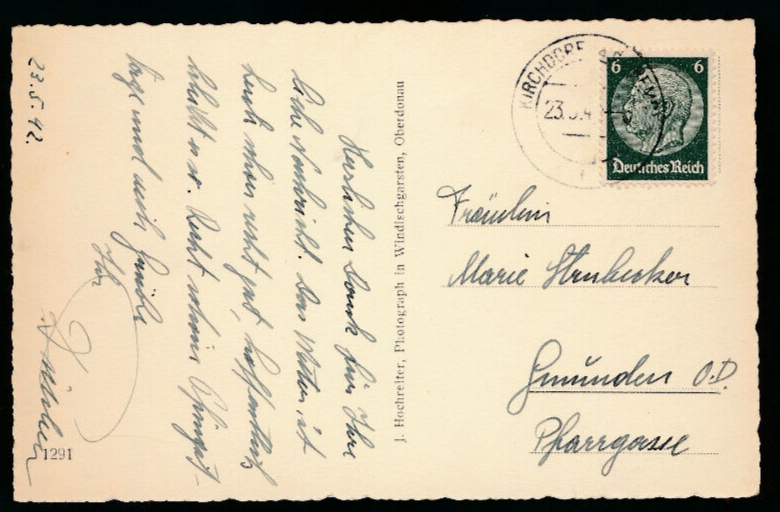 23.5.42.
Herzlichen Dank für Ihre
liebe Nachricht. Das Wetter ist
heute schon recht gut, hoffentlich
bleibt es so. Recht schöne Pfingst-
tage und viele Grüße
Ihr
1291
J. Hochreiter, Photograph in Windischgarsten, Oberdonau
KIRCHDORF
23.5.4
6 6
Deutsches Reich
Fräulein
Marie Strubecker
Gmunden O.D.
Pfarrgasse